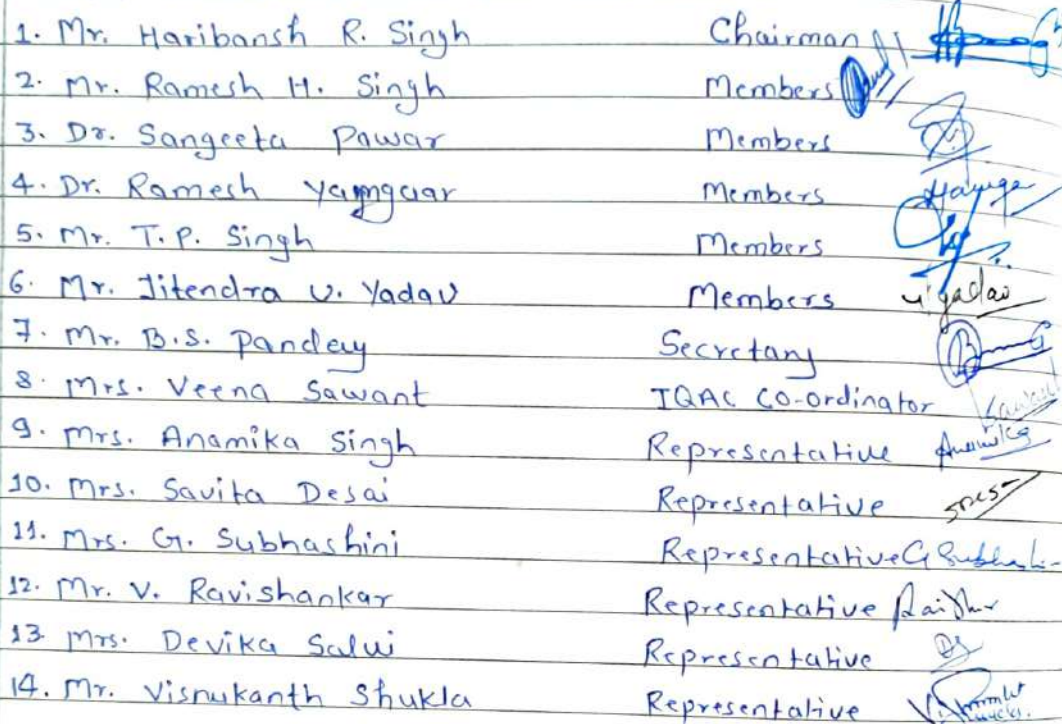 1. Mr. Haribansh R. Singh Chairman
2. Mr. Ramesh H. Singh Members
3. Dr. Sangeeta Pawar Members
4. Dr. Ramesh Members
5. Mr. T.P. Singh Members
6. Mr. Jitendra V. Yadav Members Yadav
7. Mr. B.S. Pandey Secretary
8. Mrs. Veena Sawant IQAC Co-ordinator
9. Mrs. Anamika Singh Representative
10. Mrs. Savita Desai Representative
11. Mrs. G. Subhashini Representative G
12. Mr. V. Ravishankar Representative
13. Mrs. Devika Salvi Representative
14. Mr. Visnukanth Shukla Representative